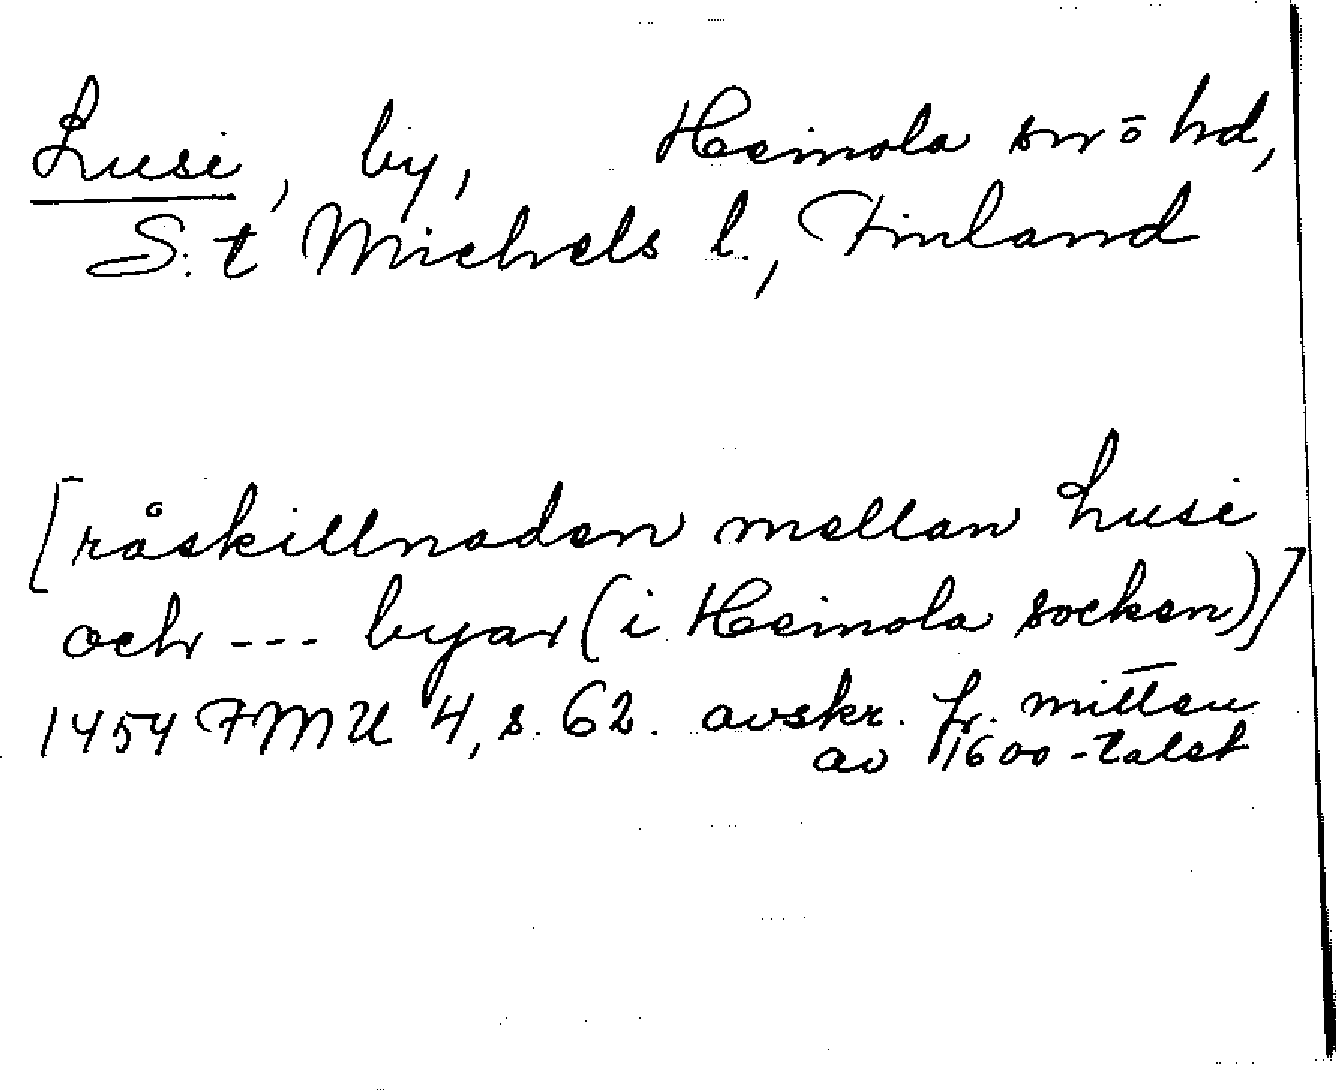 Lusi, by, Heinola sn ō hd,
S:t Michels l., Finland
[råskillnaden mellan Lusi
och --- byar (i Heinola socken)]
1454 FMU 4, s. 62. avskr. fr. mitten
av 1600-talet